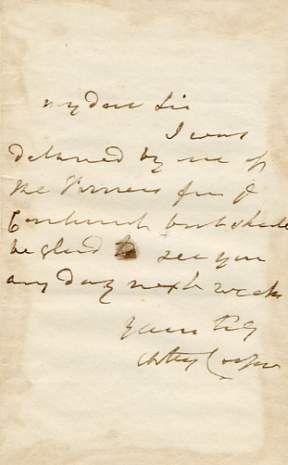 My dear Sir
I was
detained by one of
the
but shall
be glad to see you
any day next week
Yours
Astley Cooper